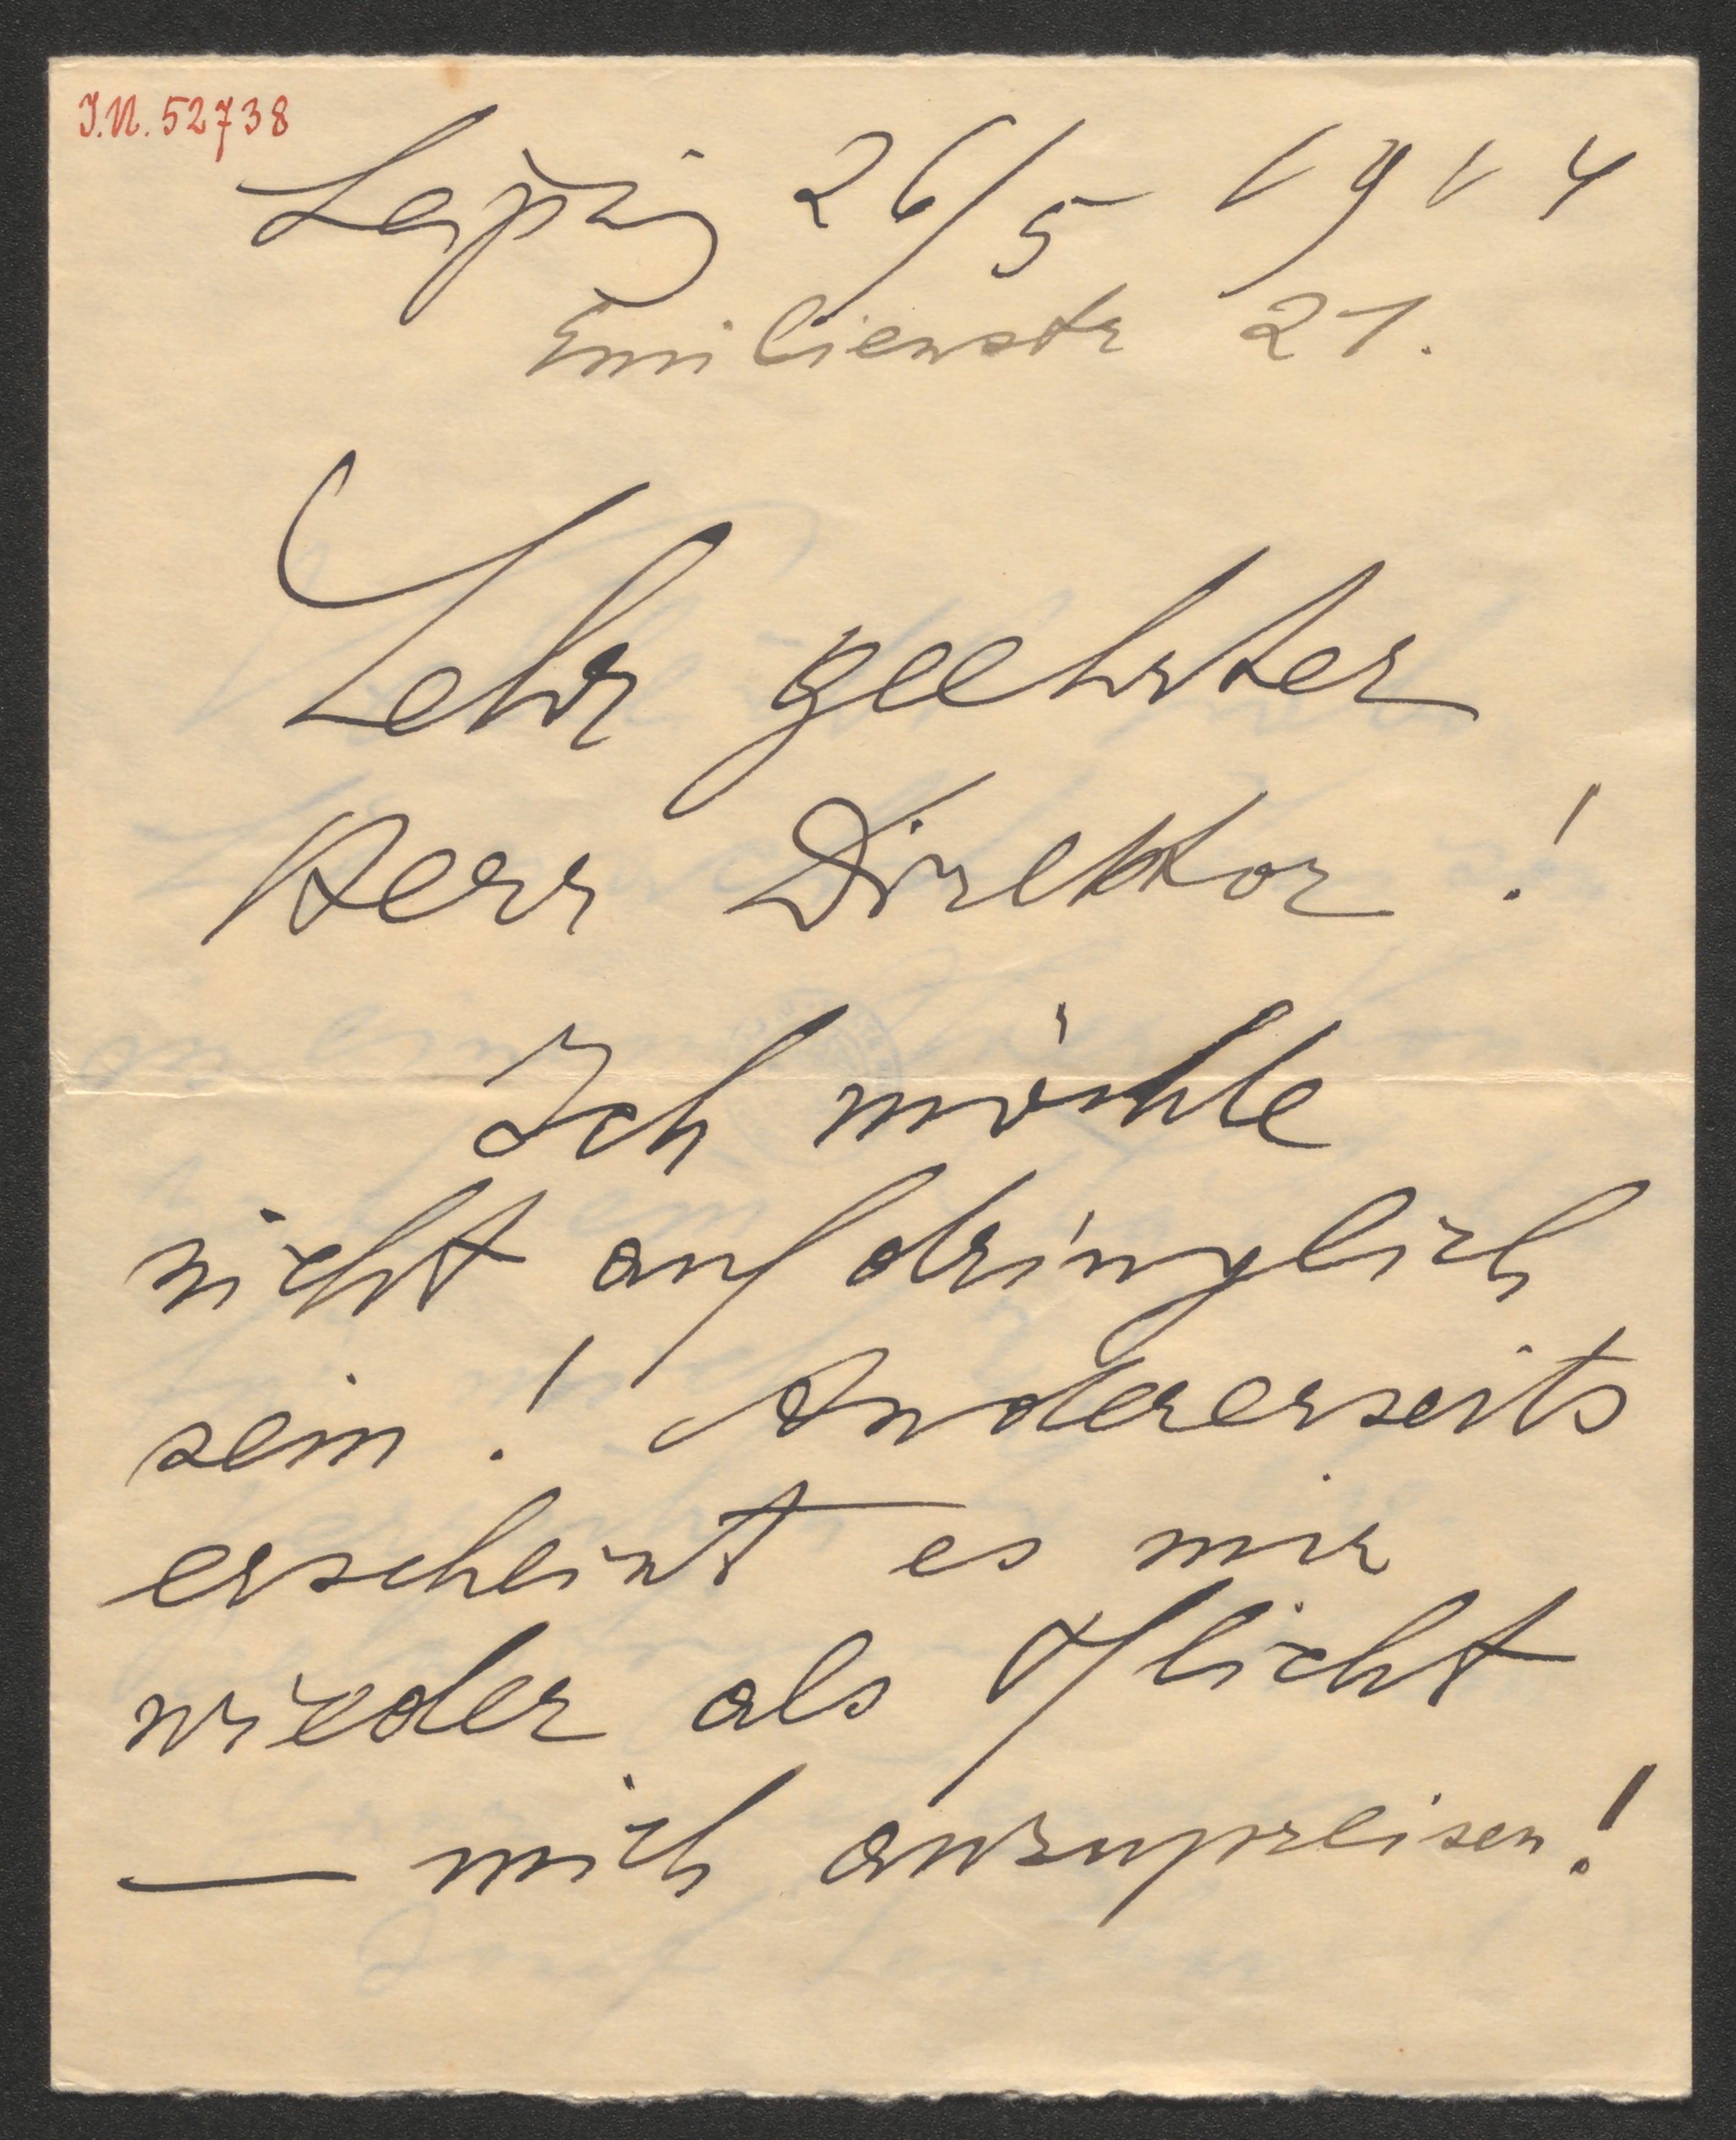 I.N. 52738
Leipzig 26/5 1914
Emilienstr 21.
Sehr geehrter
Herr Direktor !
Ich möchte
nicht aufdringlich
sein ! Andererseits
erscheint es mir
wieder als Pflicht
— mich anzupreisen !